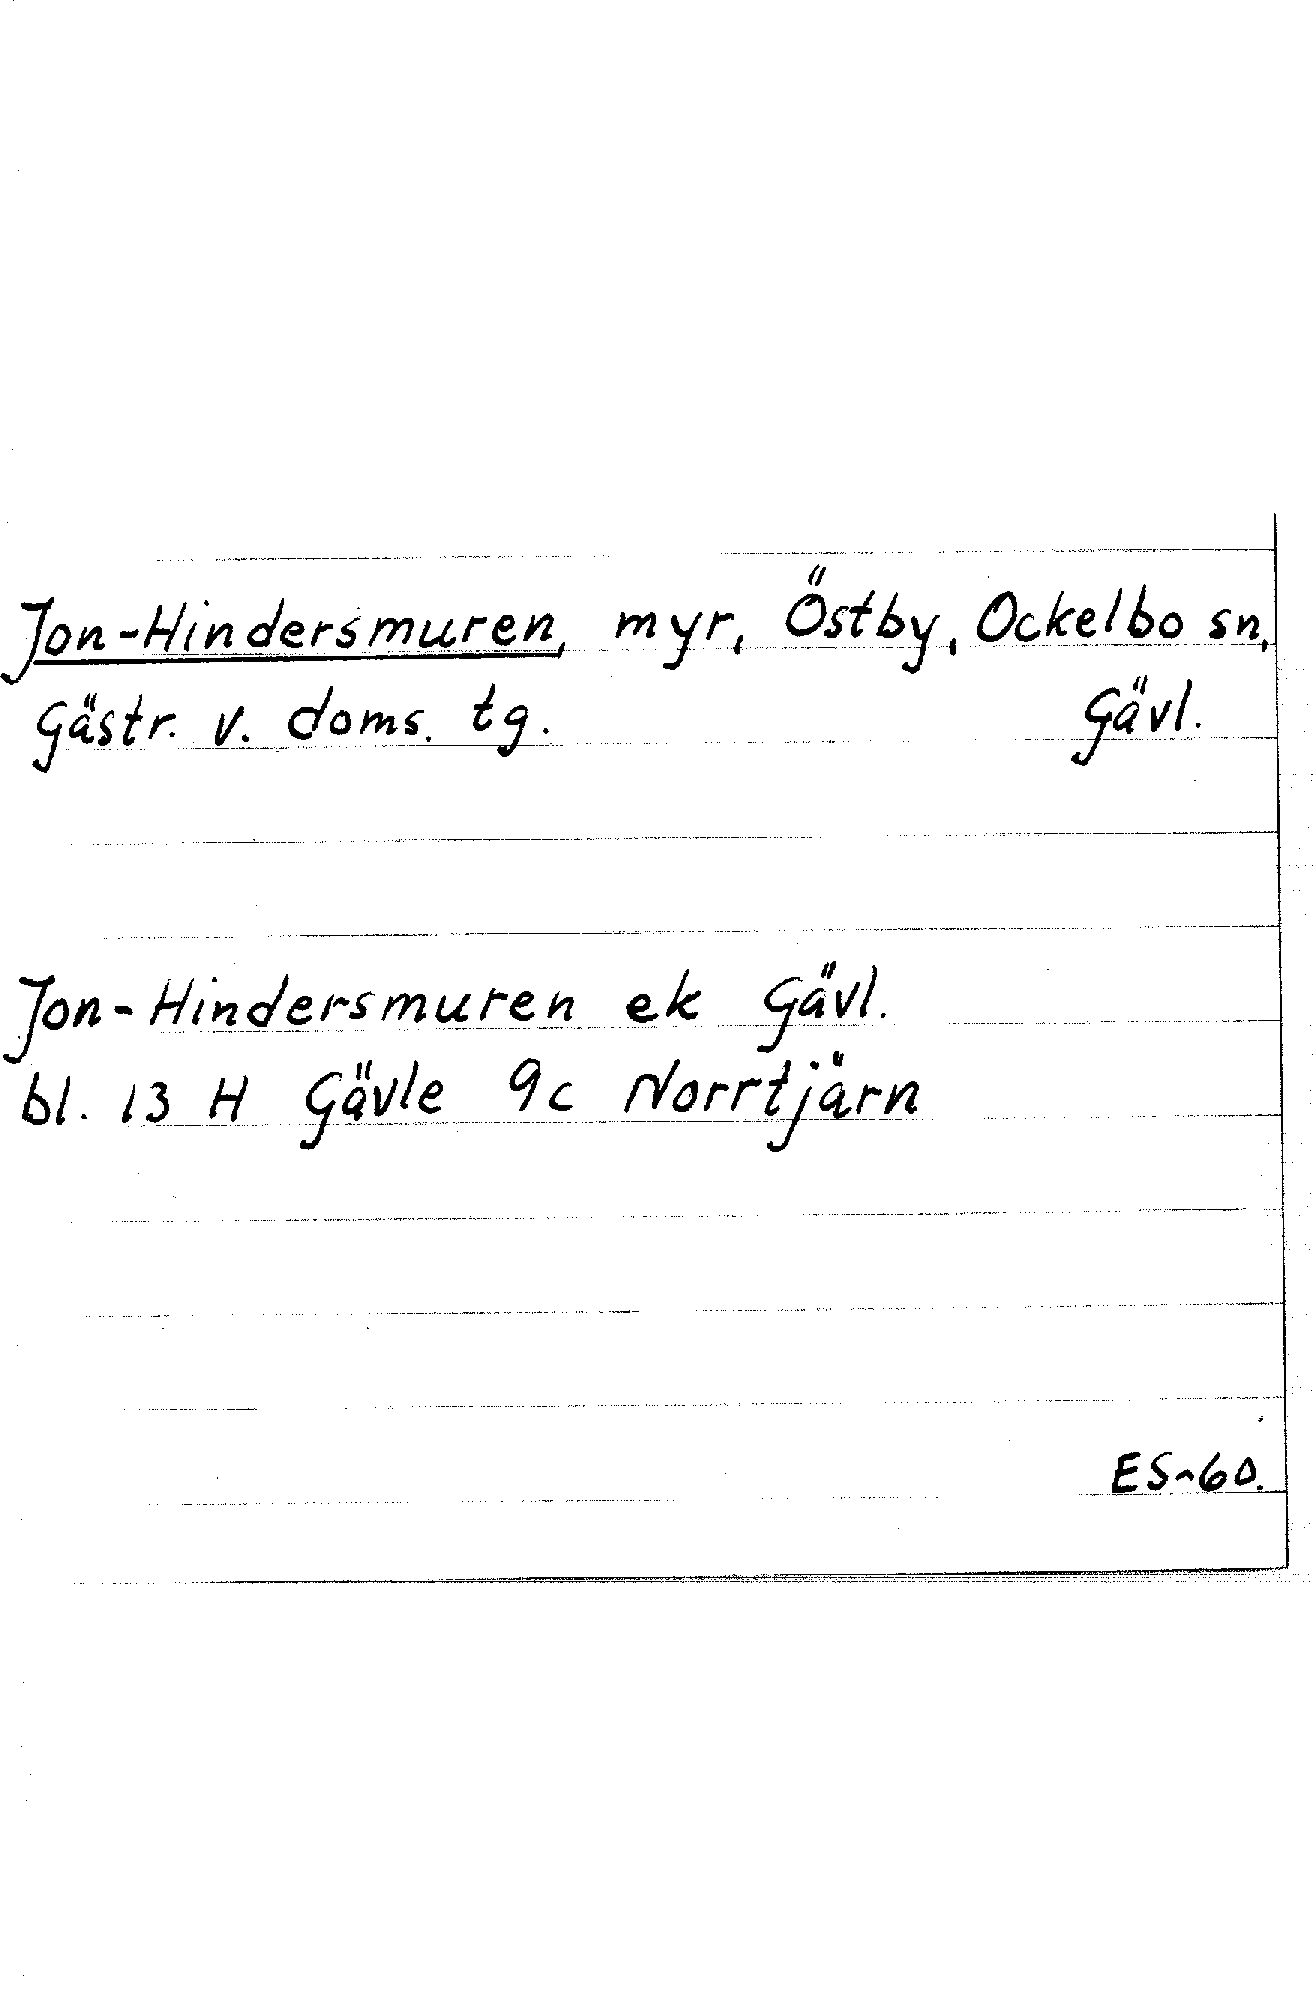 Jon-Hindersmuren, myr, Östby, Ockelbo sn,
Gästr. v. doms. tg. Gävl.
Jon-Hindersmuren ek Gävl.
bl. 13 H Gävle 9c Norrtjärn
ES-60.